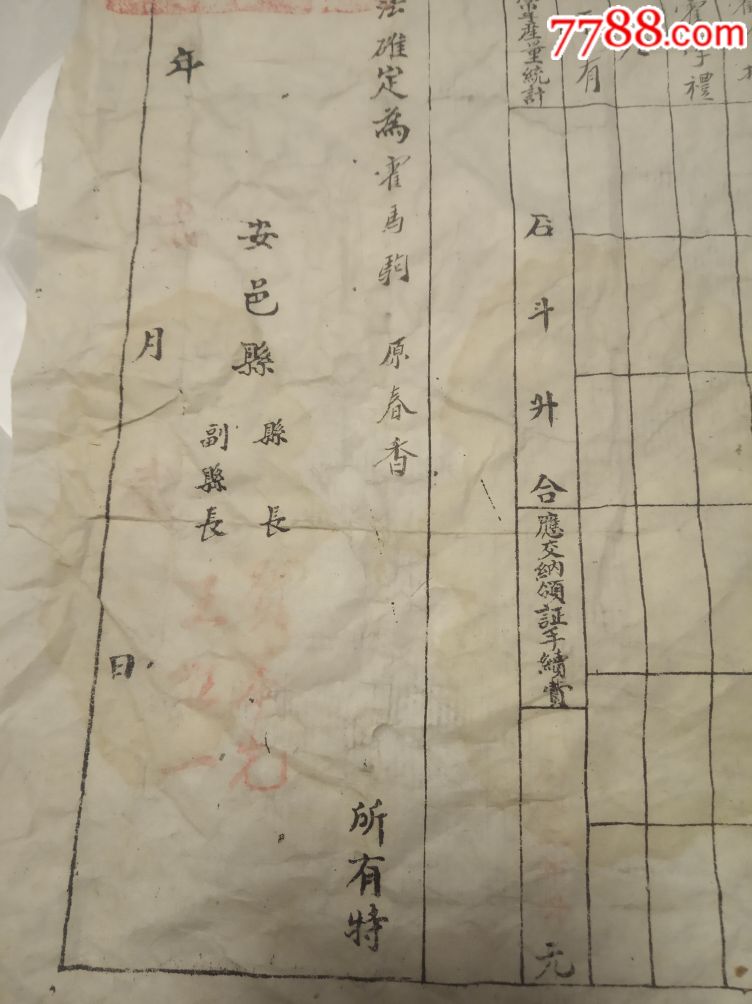 7788.com
禮
有
常年產量統計
石斗升合
應交納領証手續費
元
法確定為霍馬駒 原春香
所有特
安邑縣
縣長
副縣長
王
一
年月日